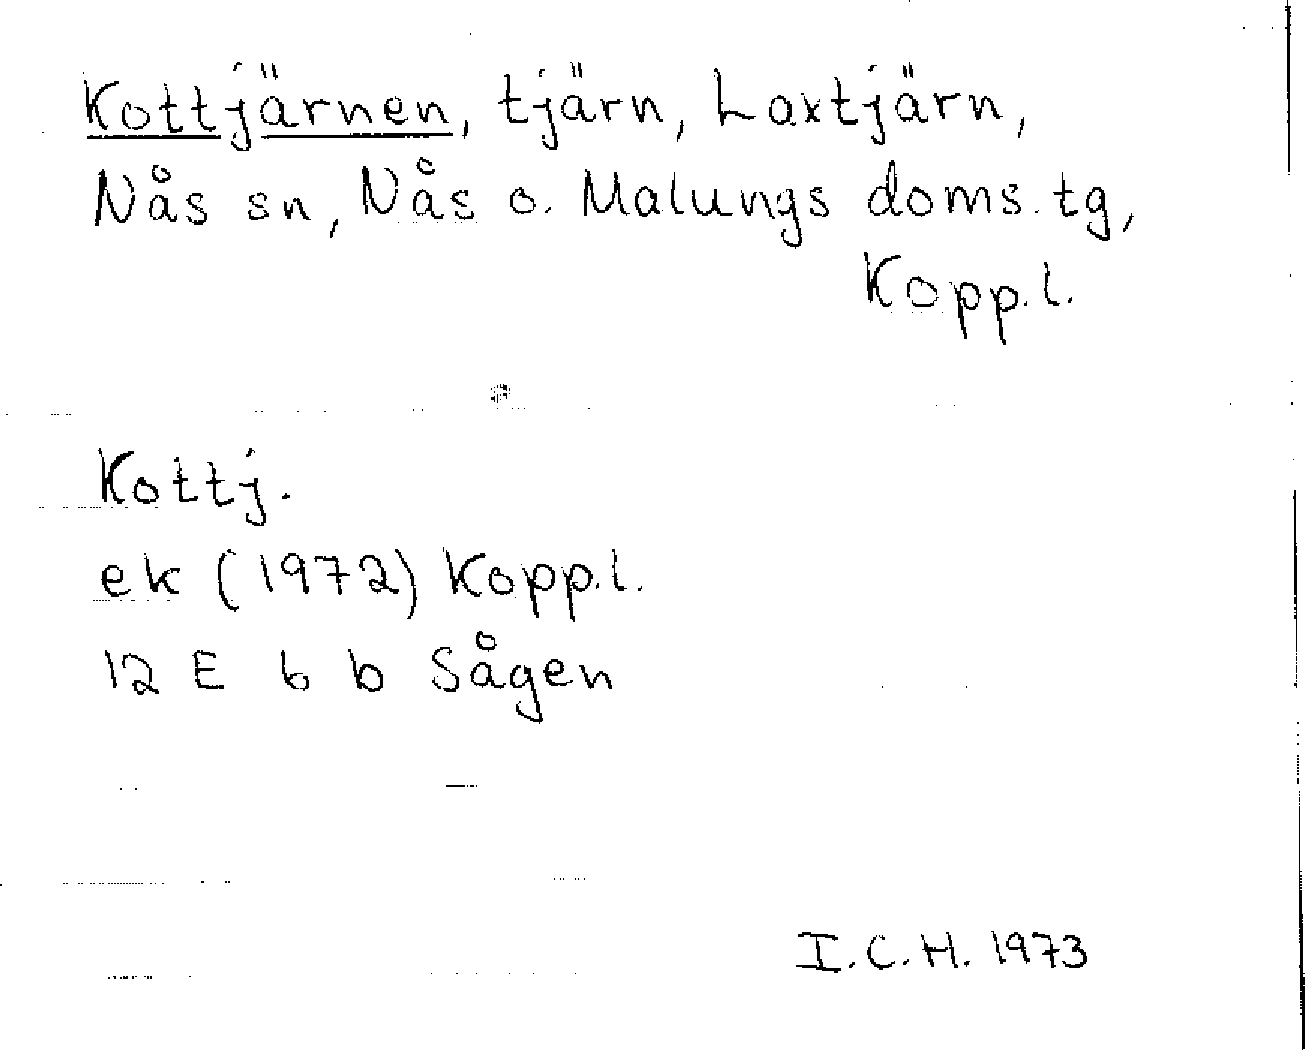 Kottjärnen, tjärn, Laxtjärn,
Nås sn, Nås o. Malungs doms.tg,
Kopp.l.
Kottj.
ek (1972) Kopp.l.
12 E 6 b Sågen
I.C.H. 1973